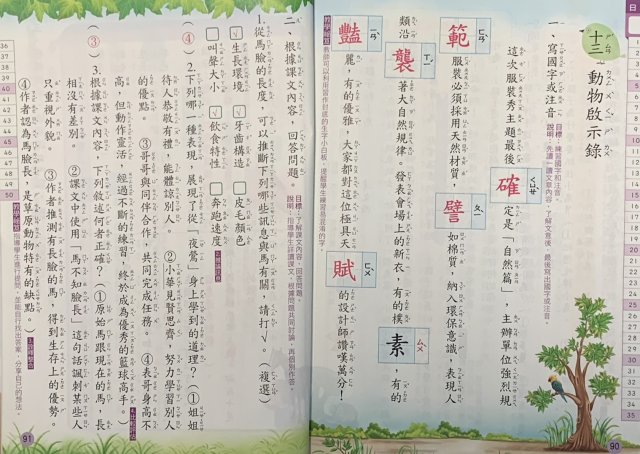 十三、動物啟示錄
一、寫國字或注音
目標：練習國字和注音
說明：先讀一讀文章內容，了解文意後，最後寫出國字或注音。
這次服裝秀主題最後確定是「自然篇」，主辦單位強烈規
範服裝必須採用天然材質，譬如棉質，納入環保意識，表現人
類沿襲著大自然規律。發表會場上的新衣，有的樸素，有的
豔麗，有的優雅，大家都對這位極具天賦的設計師讚嘆萬分！
90
二、根據課文內容，回答問題。
目標：了解課文內容，回答問題。
1.從馬臉的長度，可以推斷下列哪些訊息與馬有關，請打√。（複選）
☑生長環境 ☑牙齒構造 □皮毛顏色
□叫聲大小 ☑飲食特性 □奔跑速度
（④）2.下列哪一種表現，展現了從「夜鶯」身上學到的道理？（①姐姐
待人恭敬有禮，能體諒別人。 ②小華見賢思齊，努力學習別人
的優點。 ③哥哥與同伴合作，共同完成任務。 ④表哥身高不
高，但動作靈活，經過不斷的練習，終於成為優秀的籃球高手。）
（③）3.根據課文內容，下列敘述何者正確？（①原始馬跟現在的馬，長
相沒有差別。 ②課文中使用「馬不知臉長」這句話諷刺某些人
只重視外貌。 ③作者推測有長臉的馬，得到生存上的優勢。
④作者認為馬臉長，是草原動物特有的缺點。）
91